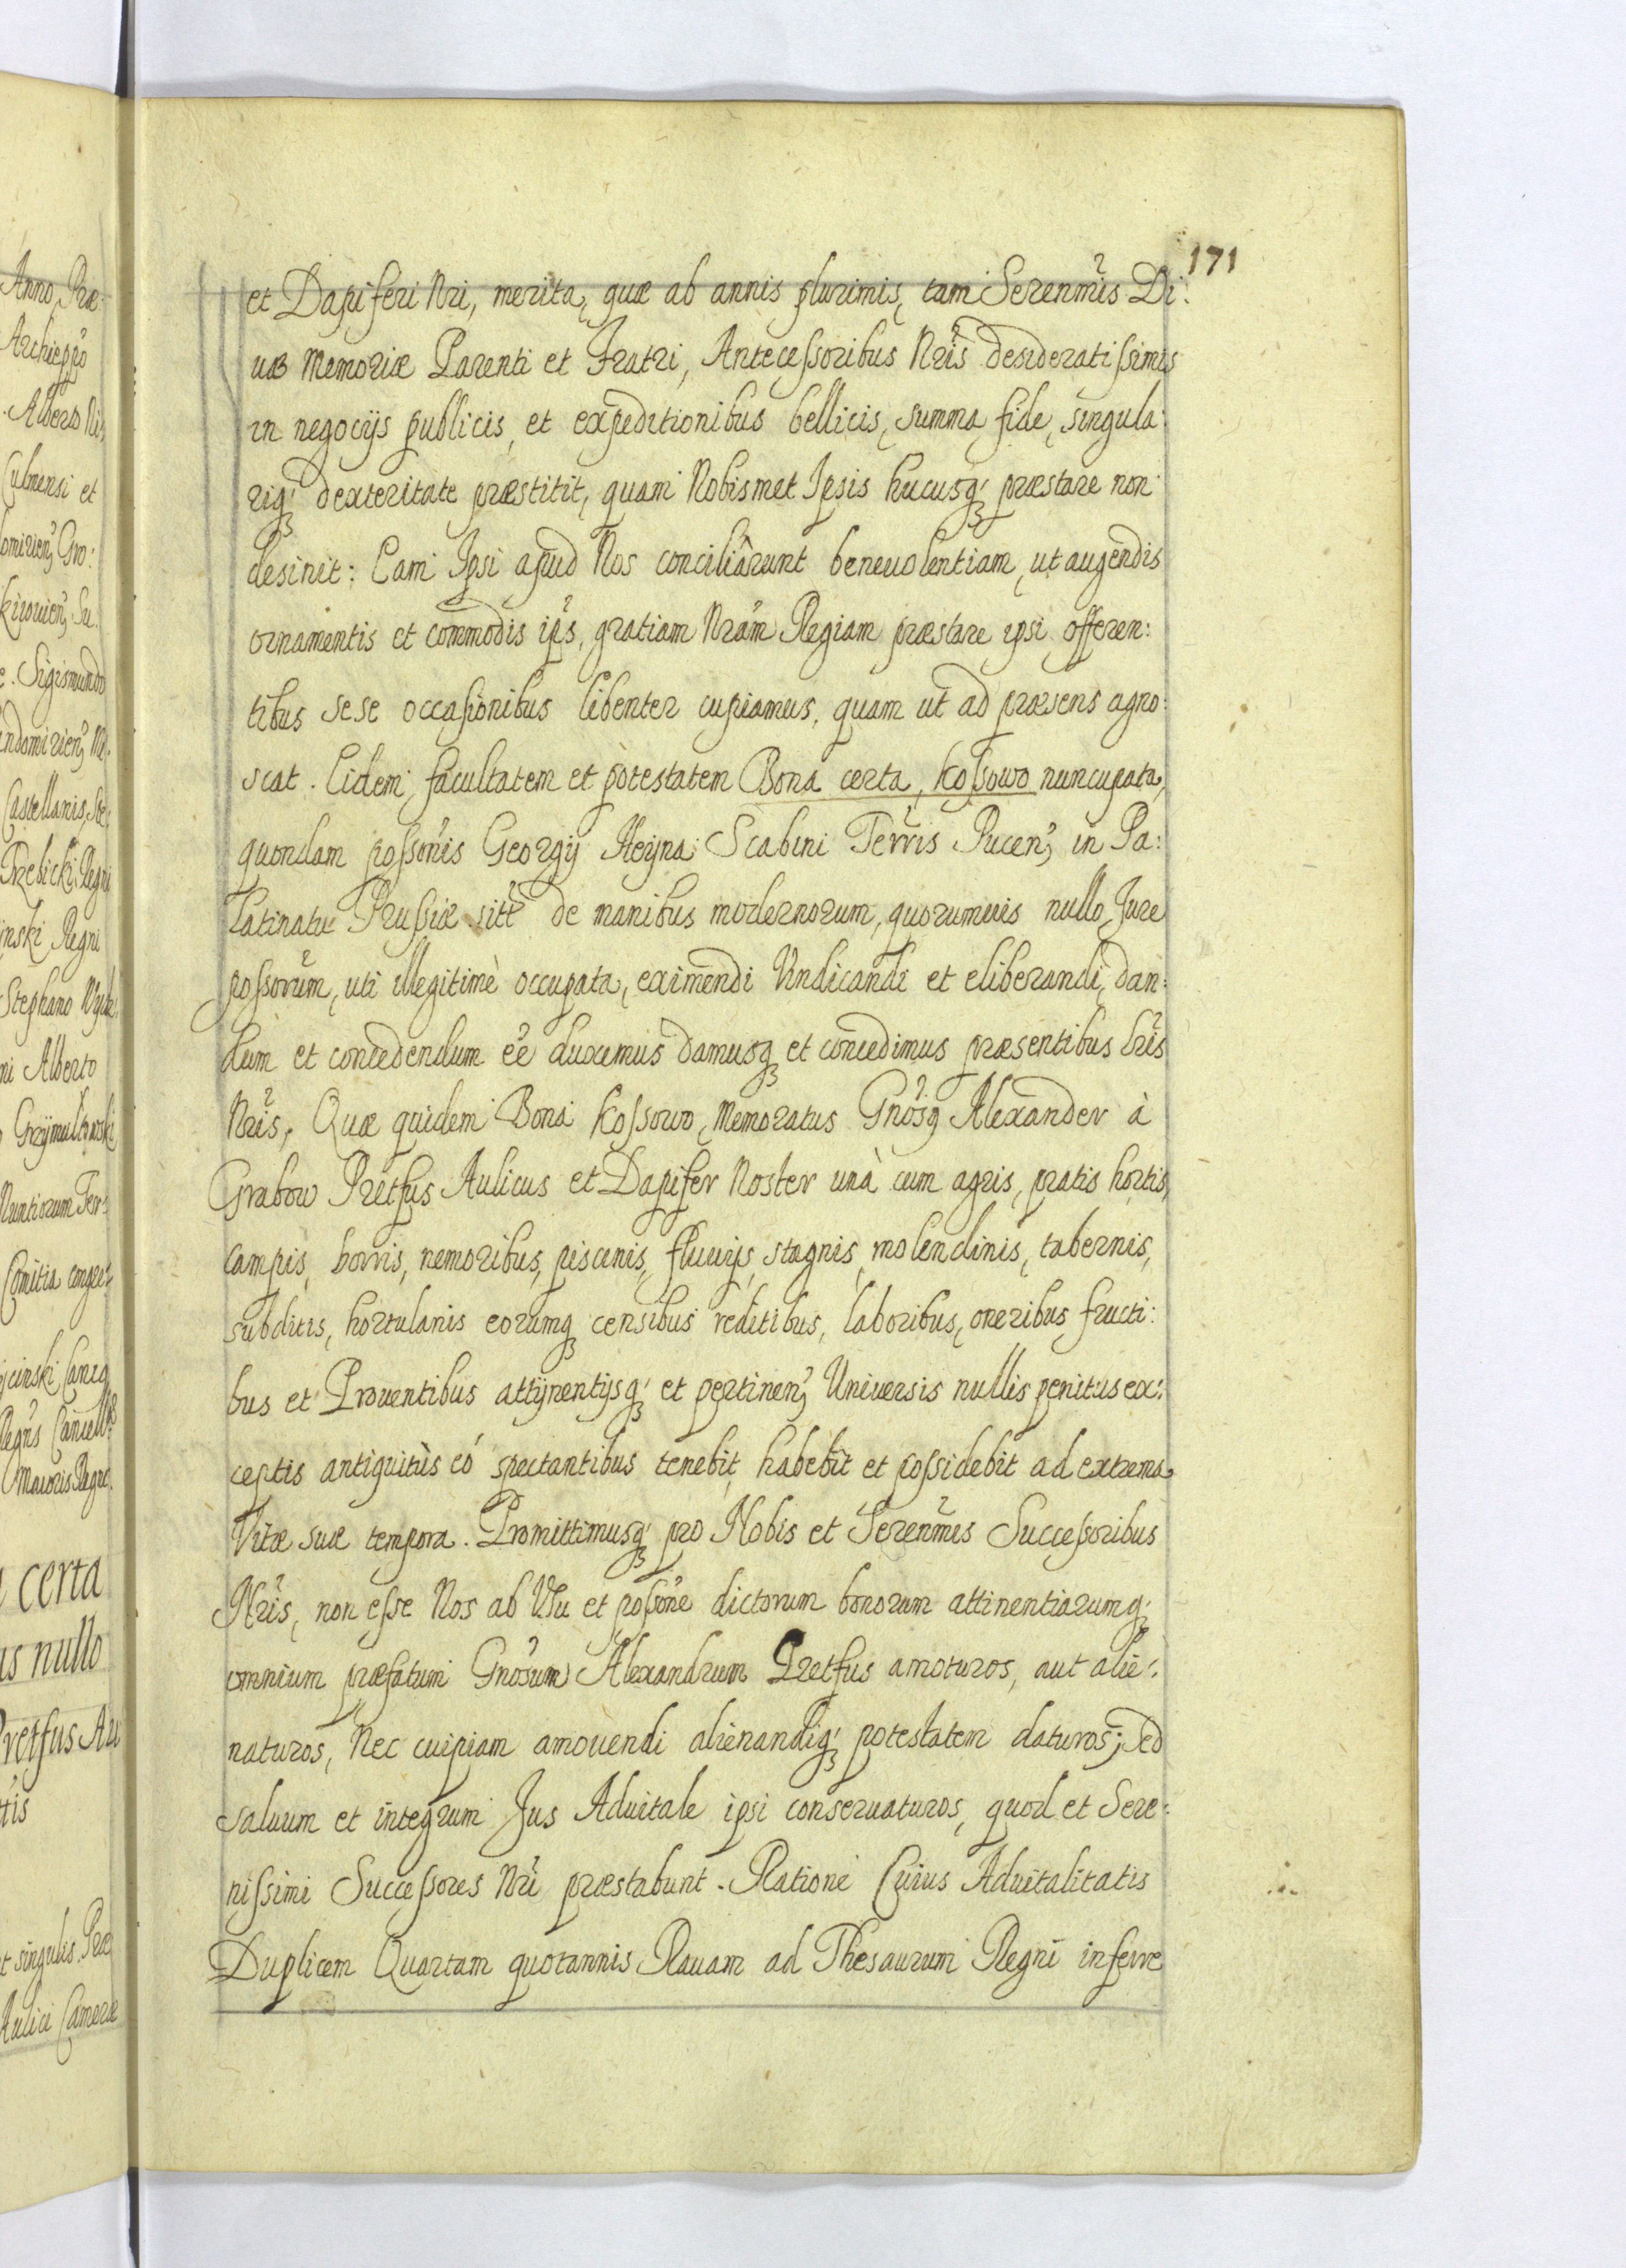 171
et Dapiferi Nri, merita, quæ ab annis plurimis, tam Serenmis Di:
uæ Memoriæ Parenti et Fratri, Antecessoribus Nris desideratissimis
in negocijs publicis, et expeditionibus bellicis, summa fide, singula:
riq; dexteritate præstitit, quam Nobismet Ipsis hucusq; præstare non
desinit: Eam Ipsi apud Nos conciliârunt beneuolentiam, ut augendis
ornamentis et commodis ips, gratiam Nram Regiam præstare ipsi offeren:
tibus sese occasionibus libenter cupiamus, quam ut ad præsens agno:
scat. Eidem facultatem et potestatem Bona certa, Kossowo nuncupata,
quondam possonis Georgij Heyna Scabini Terris Pucen; in Pa:
latinatu Prussiæ sitt de manibus modernorum, quorumuis nullo Jure
possorum, uti illegitimè occupata, eximendi Vindicandi et eliberandi, dan:
dum et concedendum ee duximus damusq; et concedimus præsentibus lris
Nris, Quæ quidem Bona Kossowo, Memoratus Gnosq Alexander à
Grabow Pretfus Aulicus et Dapifer Noster unà cum agris, pratis hortis,
campis, borris, nemoribus, piscinis, fluuijs, stagnis, molendinis, tabernis,
subditis, hortulanis eorumq; censibus reditibus, laboribus, oneribus fructi:
bus et Prouentibus attijnentijsq; et pertinen; Uniuersis nullis penitus ex:
ceptis antiquitùs eó spectantibus tenebit, habebit et possidebit ad extrema
Vitæ suæ tempora. Promittimusq; pro Nobis et Serenmis Successoribus
Nris, non esse Nos ab Usu et possone dictorum bonorum attinentiarumq;
omnium præfatum Gnosum Alexandrum Pretfus amoturos, aut alie:
naturos, Nec cuipiam amouendi alienandiq; potestatem daturos; sed
saluum et integrum Jus Aduitale ipsi conseruaturos, quod et Sere:
nissimi Successores Nri præstabunt. Ratione Cuius Aduitalitatis
Duplicem Quartam quotannis Rauam ad Thesaurum Regni inferre